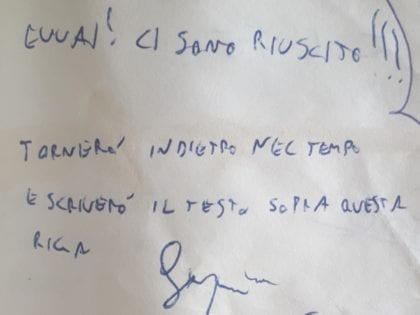 EVVAI! CI SONO RIUSCITO!!!
TORNERÓ INDIETRO NEL TEMPO
E SCRIVERÓ IL TESTO SOPRA QUESTA
RIGA